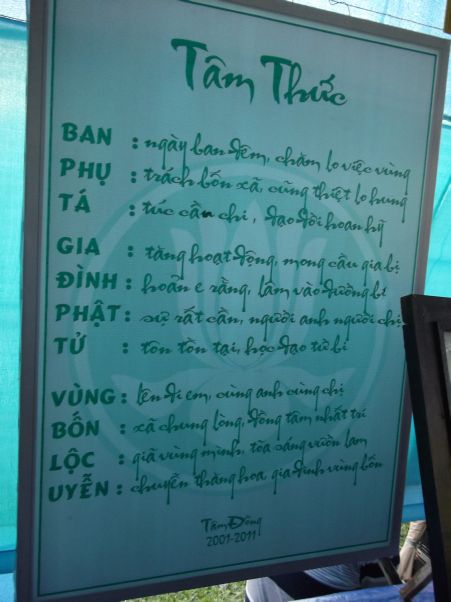 Tâm Thức
BAN : ngày ban đêm, chăm lo việc vùng
PHỤ : trách bốn xã, cùng thiệt lo hung
TÁ : túc cần chi, đạo đời hoan hỷ
GIA : tăng hoạt động, mong cầu gia bị
ĐÌNH : hoãn e rằng, lâm vào đường bí
PHẬT : sự rất cần, người anh người chị
TỬ : tôn tồn tại, học đạo từ bi
VÙNG : lên đi em, cùng anh cùng chị
BỐN : xã chung lòng, đồng tâm nhất trí
LỘC : giã vùng mình, tỏa sáng vườn lam
UYỄN : chuyển thăng hoa, gia đình vùng bốn
Tâm Đông
2001-2011